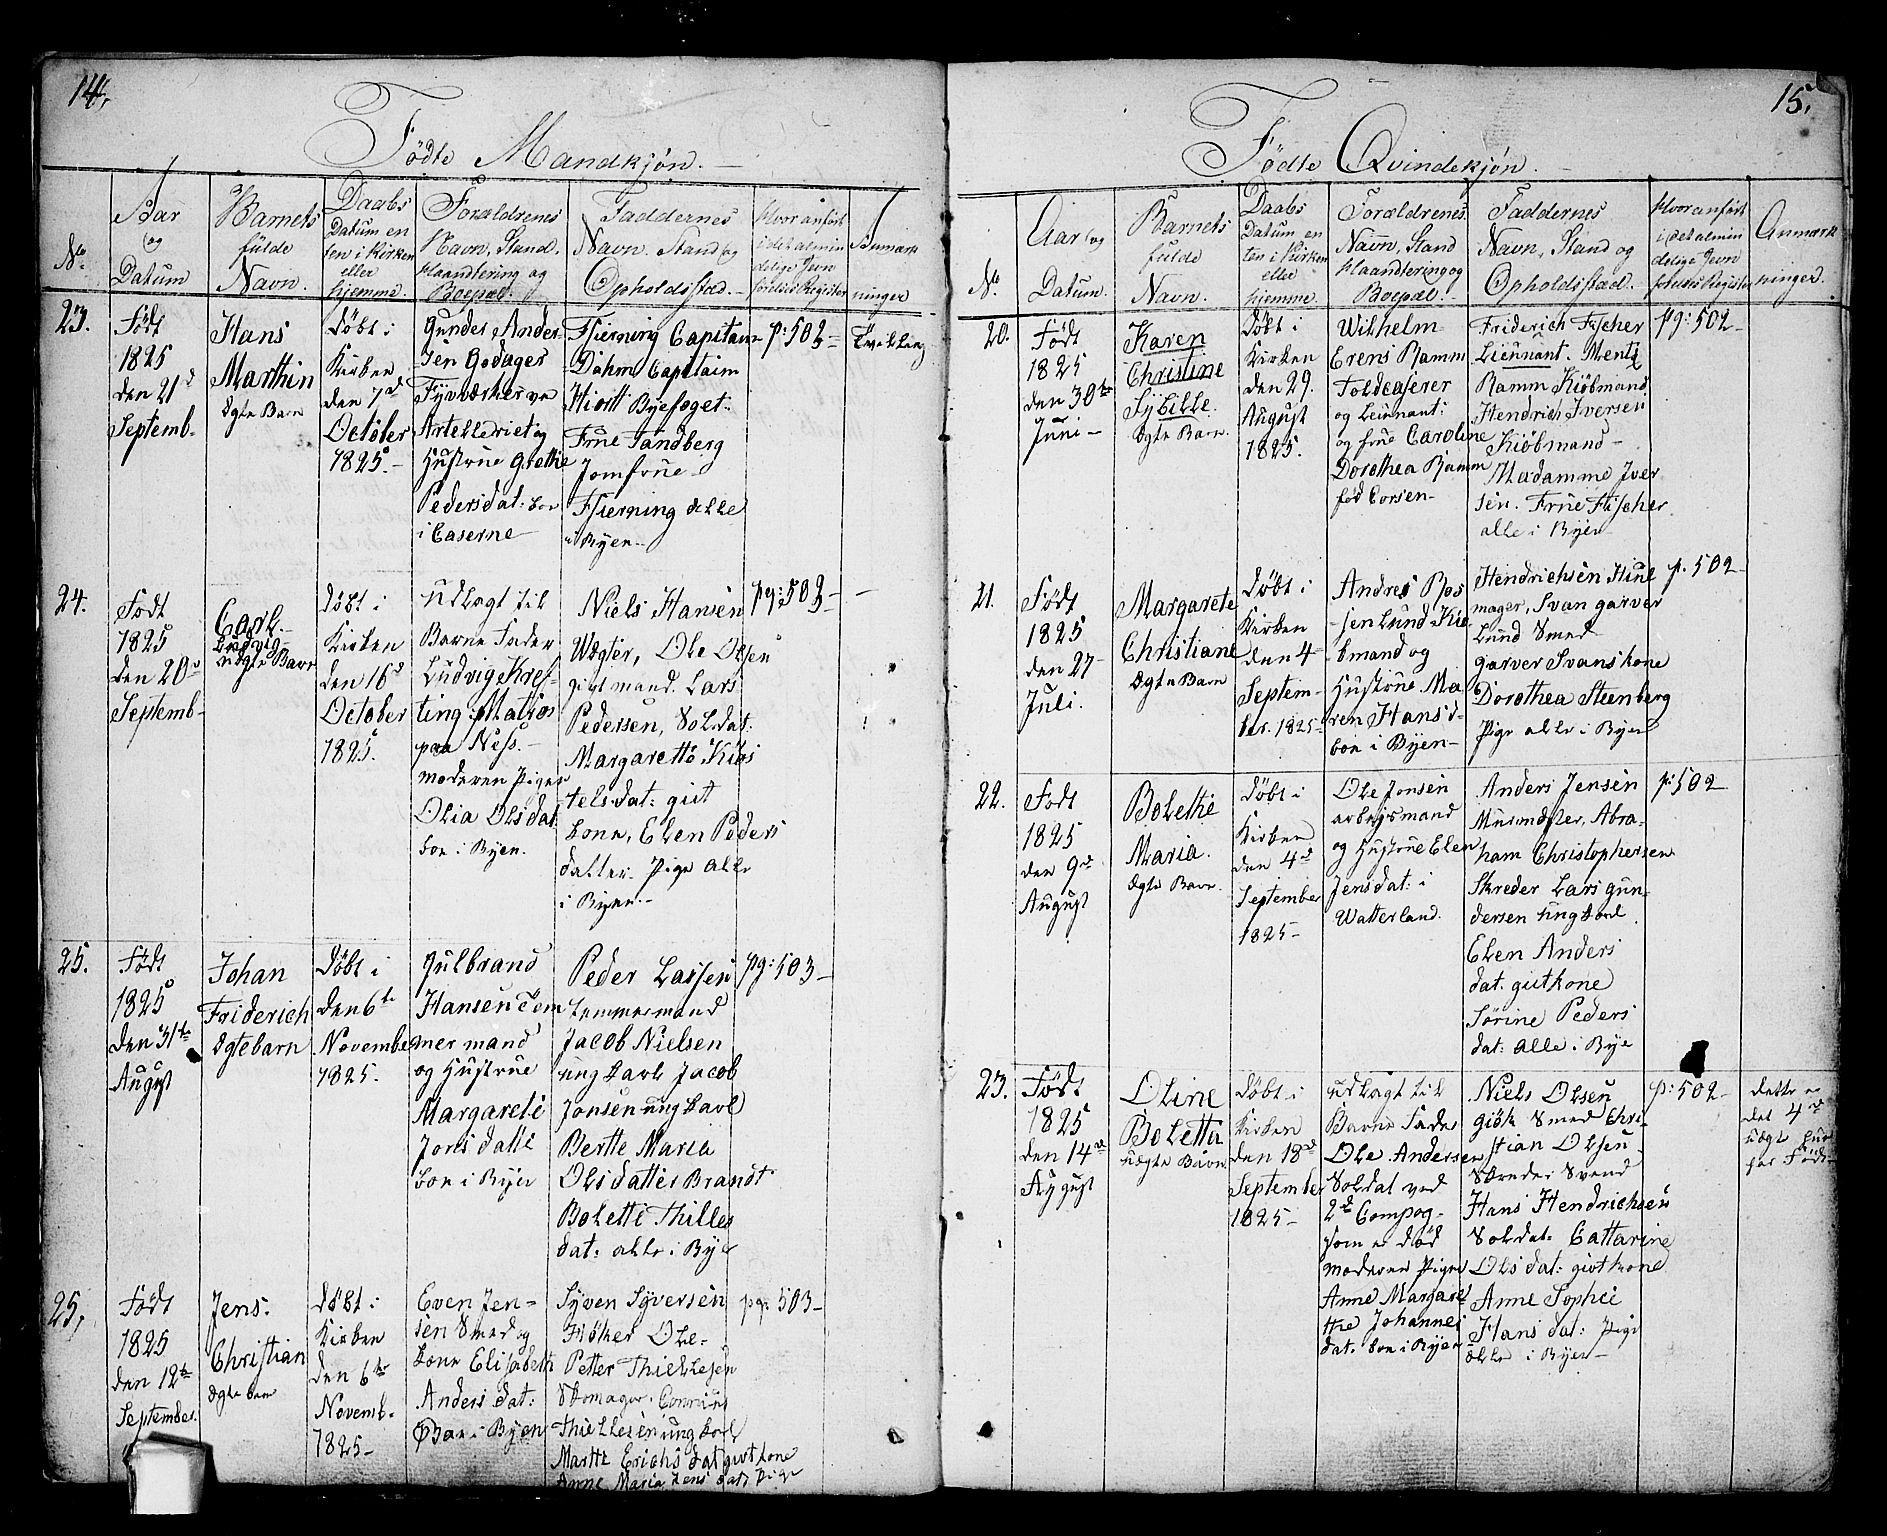 14,
Födte Mandkjön.
No.
Aar og Datum
Barnets fulde Navn.
Daabs Datum enten i Kirken eller hjemme.
Forældrenes Navn, Stand, Haandtering og Boepæl.
Faddernes Navn, Stand og Opholdsstæd.
Hvor anfört i det almindelige Jevnförelses Register
Anmærkninger
23.
Födt
1825
den 21d
Septemb.
Hans
Marthin
Ægte Barn
Döbt i
Kirken
den 7d
October
1825.
Gunder Ander-
sen Godager
Fyrværker ve
Artelleriet og
Hustrue Grethe
Pedersdat: boe
i Caserne
Fjerning Capitain
Dahm Capitaim
Hiort Byefoget.
Frue Sandberg
Jomfrue
Fjerning alle
i Byen
p: 503
Tvilling
24.
Födt
1825
den 20d
Septemb
Carl.
Ludvig
uægte Barn
Döbt i
Kirken
den 16d
October
1825.
Udlagt til
Barne Fader
Ludvig Kres-
ting Matros
paa Ness.
moderen Piger
Olia Olsdat
boe i Byen.
Niels Hansen
Vægter, Ole Olsen
gift mand. Lars
Pedersen, Soldat.
Margarette Kibs
telsdat: gift
kone, Elen Peders
datter. Pige alle
i Byen.
pg: 503
25.
Födt
1825
den 31te
August
Johan
Friderich
Ægtebarn
Döbt i
den 6te
November
1825.
Gulbrand
Hansen Töm
mermand
og Hustrue
Margarete
Jons datte
boe i Byen
Peder Lassen
temmermand
Jacob Nielsen
ung karl Jacob
Jonsen ung karl
Berthe Maria
Olsdatter Brandt
Boletti Thilles
dat: alle i Byen
pg: 503
25,
Födt
1825
den 12te
September
Jens.
Christian
Ægte barn
Döbt i
Kirken
den 6te
Novemb.
1825
Even Jen-
sen Smed og
kone Elisabeth
Anders dat:
Boe i Byen
Syven Syversen
Höker Ole.
Petter Thiellesen
Skomager. Conrius
Thiellesen ung karl
Marthe Erichsdat gift kone
Anne Maria Jensdat Pige
pg: 503
15,
Födte Qvindekjön.
No
Aar og Datum.
Barnets fulde Navn.
Daabs Datum enten i Kirken eller hjemme.
Forældrenes Navn, Stand Haandtering og Boepæl.
Faddernes Navn, Stand og Opholdsstæd.
Hvor anfört i det almindelige Jevnförelses Register
Anmærkninger.
20.
Födt
1825
den 30te
Juni
Karen
Christine
Sybille.
Ægte Barn.
Döbt i
Kirken
den 29.
August
1825.
Wilhelm
Erens Ramm
Toldcaserer
og Leiunant:
og frue Caroline
Dorothea Ramm
föd Corsen
Friderich Fischer
Leiunant. Mentz
Ramm Kiöbmand
Hendrich Iversen
Kiöbmand
Madamme Iver
sen. Frue Fischer
alle i Byen
pg: 502
21.
Födt
1825
den 27
Juli.
Margarete
Christiane
Ægte Barn
Döbt i
Kirken
den 4
Septem-
ber. 1825
Andres Ros
sen Lund Kiö-
bmand og
Hustrue Ma
ren Hans'd
boe i Byen
Hendrichsen Hiul
mager, Svan garver
Lund Smed
garver Svans kone
Dorothea Steenberg
Pige alle i Byen
p. 502
22.
Födt
1825
den 9d
August
Bolethe
Maria.
Ægte Barn.
Döbt i
Kirken
den 4d
September
1825
Ole Jonsen
arbejsmand
og Hustrue Elen
Jensdat: i
Watterland.
Anders Jensen
Murmester, Abra-
ham Christophersen
Skreder Lars Gun-
dersen ung karl
Elen Anders
dat. gift kone
Sörine Peders
dat: alle i Bye
p: 502
23.
Födt
1825
den 14de
August
Oline
Boletta
uægte Barn
Döbt i
Kirken
den 18de
September
1825
Udlagt til
Barne Fader
Ole Andersen
Soldat ved
2d Compag-
som er död
moderen Pigen
Anne Margare
the Johannes
dat. boe i Byen
Niels Olsen
Giök Smed Chri-
stian Olsen
Skreder Svend
Hans Hendrichsen
Soldat. Cattarine
Olsdat: gift kone
Anne Sophei
Hansdat: Pige
alle i Byen
p: 502
dette er
det 4de
uægte hun
har Född